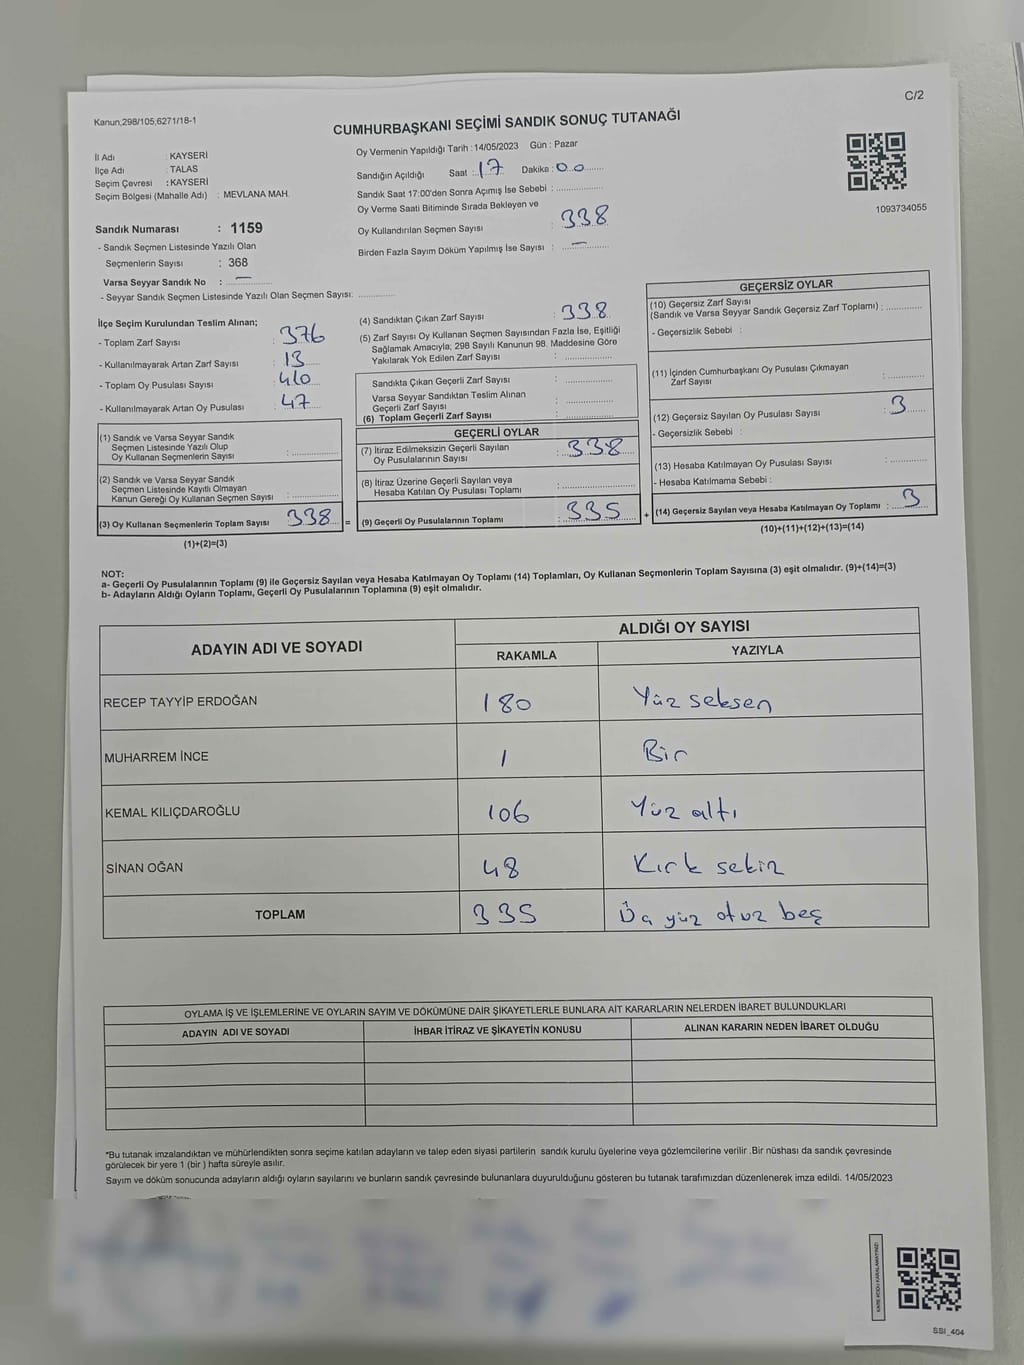 C/2
Kanun,298/105,6271/18-1
CUMHURBAŞKANI SEÇİMİ SANDIK SONUÇ TUTANAĞI
İl Adı : KAYSERİ
İlçe Adı : TALAS
Seçim Çevresi : KAYSERİ
Seçim Bölgesi (Mahalle Adı) : MEVLANA MAH.
Oy Vermenin Yapıldığı Tarih : 14/05/2023 Gün : Pazar
Sandığın Açıldığı Saat : 17 Dakika : 00
Sandık Saat 17:00'den Sonra Açımış İse Sebebi :
Oy Verme Saati Bitiminde Sırada Bekleyen ve
Oy Kullandırılan Seçmen Sayısı : 338
Birden Fazla Sayım Döküm Yapılmış İse Sayısı : —
1093734055
Sandık Numarası : 1159
- Sandık Seçmen Listesinde Yazılı Olan
Seçmenlerin Sayısı : 368
Varsa Seyyar Sandık No : —
- Seyyar Sandık Seçmen Listesinde Yazılı Olan Seçmen Sayısı:
İlçe Seçim Kurulundan Teslim Alınan;
- Toplam Zarf Sayısı : 376
- Kullanılmayarak Artan Zarf Sayısı : 13
- Toplam Oy Pusulası Sayısı : 410
- Kullanılmayarak Artan Oy Pusulası : 47
(1) Sandık ve Varsa Seyyar Sandık
Seçmen Listesinde Yazılı Olup
Oy Kullanan Seçmenlerin Sayısı :
(2) Sandık ve Varsa Seyyar Sandık
Seçmen Listesinde Kayıtlı Olmayan
Kanun Gereği Oy Kullanan Seçmen Sayısı :
(3) Oy Kullanan Seçmenlerin Toplam Sayısı 338 =
(1)+(2)=(3)
(4) Sandıktan Çıkan Zarf Sayısı : 338
(5) Zarf Sayısı Oy Kullanan Seçmen Sayısından Fazla İse, Eşitliği
Sağlamak Amacıyla; 298 Sayılı Kanunun 98. Maddesine Göre
Yakılarak Yok Edilen Zarf Sayısı :
Sandıkta Çıkan Geçerli Zarf Sayısı :
Varsa Seyyar Sandıktan Teslim Alınan
Geçerli Zarf Sayısı :
(6) Toplam Geçerli Zarf Sayısı :
GEÇERLİ OYLAR
(7) İtiraz Edilmeksizin Geçerli Sayılan
Oy Pusulalarının Sayısı : 338
(8) İtiraz Üzerine Geçerli Sayılan veya
Hesaba Katılan Oy Pusulası Toplamı :
(9) Geçerli Oy Pusulalarının Toplamı : 335 +
GEÇERSİZ OYLAR
(10) Geçersiz Zarf Sayısı
(Sandık ve Varsa Seyyar Sandık Geçersiz Zarf Toplamı) :
- Geçersizlik Sebebi :
(11) İçinden Cumhurbaşkanı Oy Pusulası Çıkmayan
Zarf Sayısı :
(12) Geçersiz Sayılan Oy Pusulası Sayısı : 3
- Geçersizlik Sebebi :
(13) Hesaba Katılmayan Oy Pusulası Sayısı :
- Hesaba Katılmama Sebebi :
(14) Geçersiz Sayılan veya Hesaba Katılmayan Oy Toplamı : 3
(10)+(11)+(12)+(13)=(14)
NOT:
a- Geçerli Oy Pusulalarının Toplamı (9) ile Geçersiz Sayılan veya Hesaba Katılmayan Oy Toplamı (14) Toplamları, Oy Kullanan Seçmenlerin Toplam Sayısına (3) eşit olmalıdır. (9)+(14)=(3)
b- Adayların Aldığı Oyların Toplamı, Geçerli Oy Pusulalarının Toplamına (9) eşit olmalıdır.
ADAYIN ADI VE SOYADI
ALDIĞI OY SAYISI
RAKAMLA YAZIYLA
RECEP TAYYİP ERDOĞAN 180 Yüz seksen
MUHARREM İNCE 1 Bir
KEMAL KILIÇDAROĞLU 106 Yüz altı
SİNAN OĞAN 48 Kırk sekiz
TOPLAM 335 Üç yüz otuz beş
OYLAMA İŞ VE İŞLEMLERİNE VE OYLARIN SAYIM VE DÖKÜMÜNE DAİR ŞİKAYETLERLE BUNLARA AİT KARARLARIN NELERDEN İBARET BULUNDUKLARI
ADAYIN ADI VE SOYADI İHBAR İTİRAZ VE ŞİKAYETİN KONUSU ALINAN KARARIN NEDEN İBARET OLDUĞU
*Bu tutanak imzalandıktan ve mühürlendikten sonra seçime katılan adayların ve talep eden siyasi partilerin sandık kurulu üyelerine veya gözlemcilerine verilir .Bir nüshası da sandık çevresinde
görülecek bir yere 1 (bir ) hafta süreyle asılır.
Sayım ve döküm sonucunda adayların aldığı oyların sayılarını ve bunların sandık çevresinde bulunanlara duyurulduğunu gösteren bu tutanak tarafımızdan düzenlenerek imza edildi. 14/05/2023
KARE KODU KARALAMAYINIZ!
SSI_404